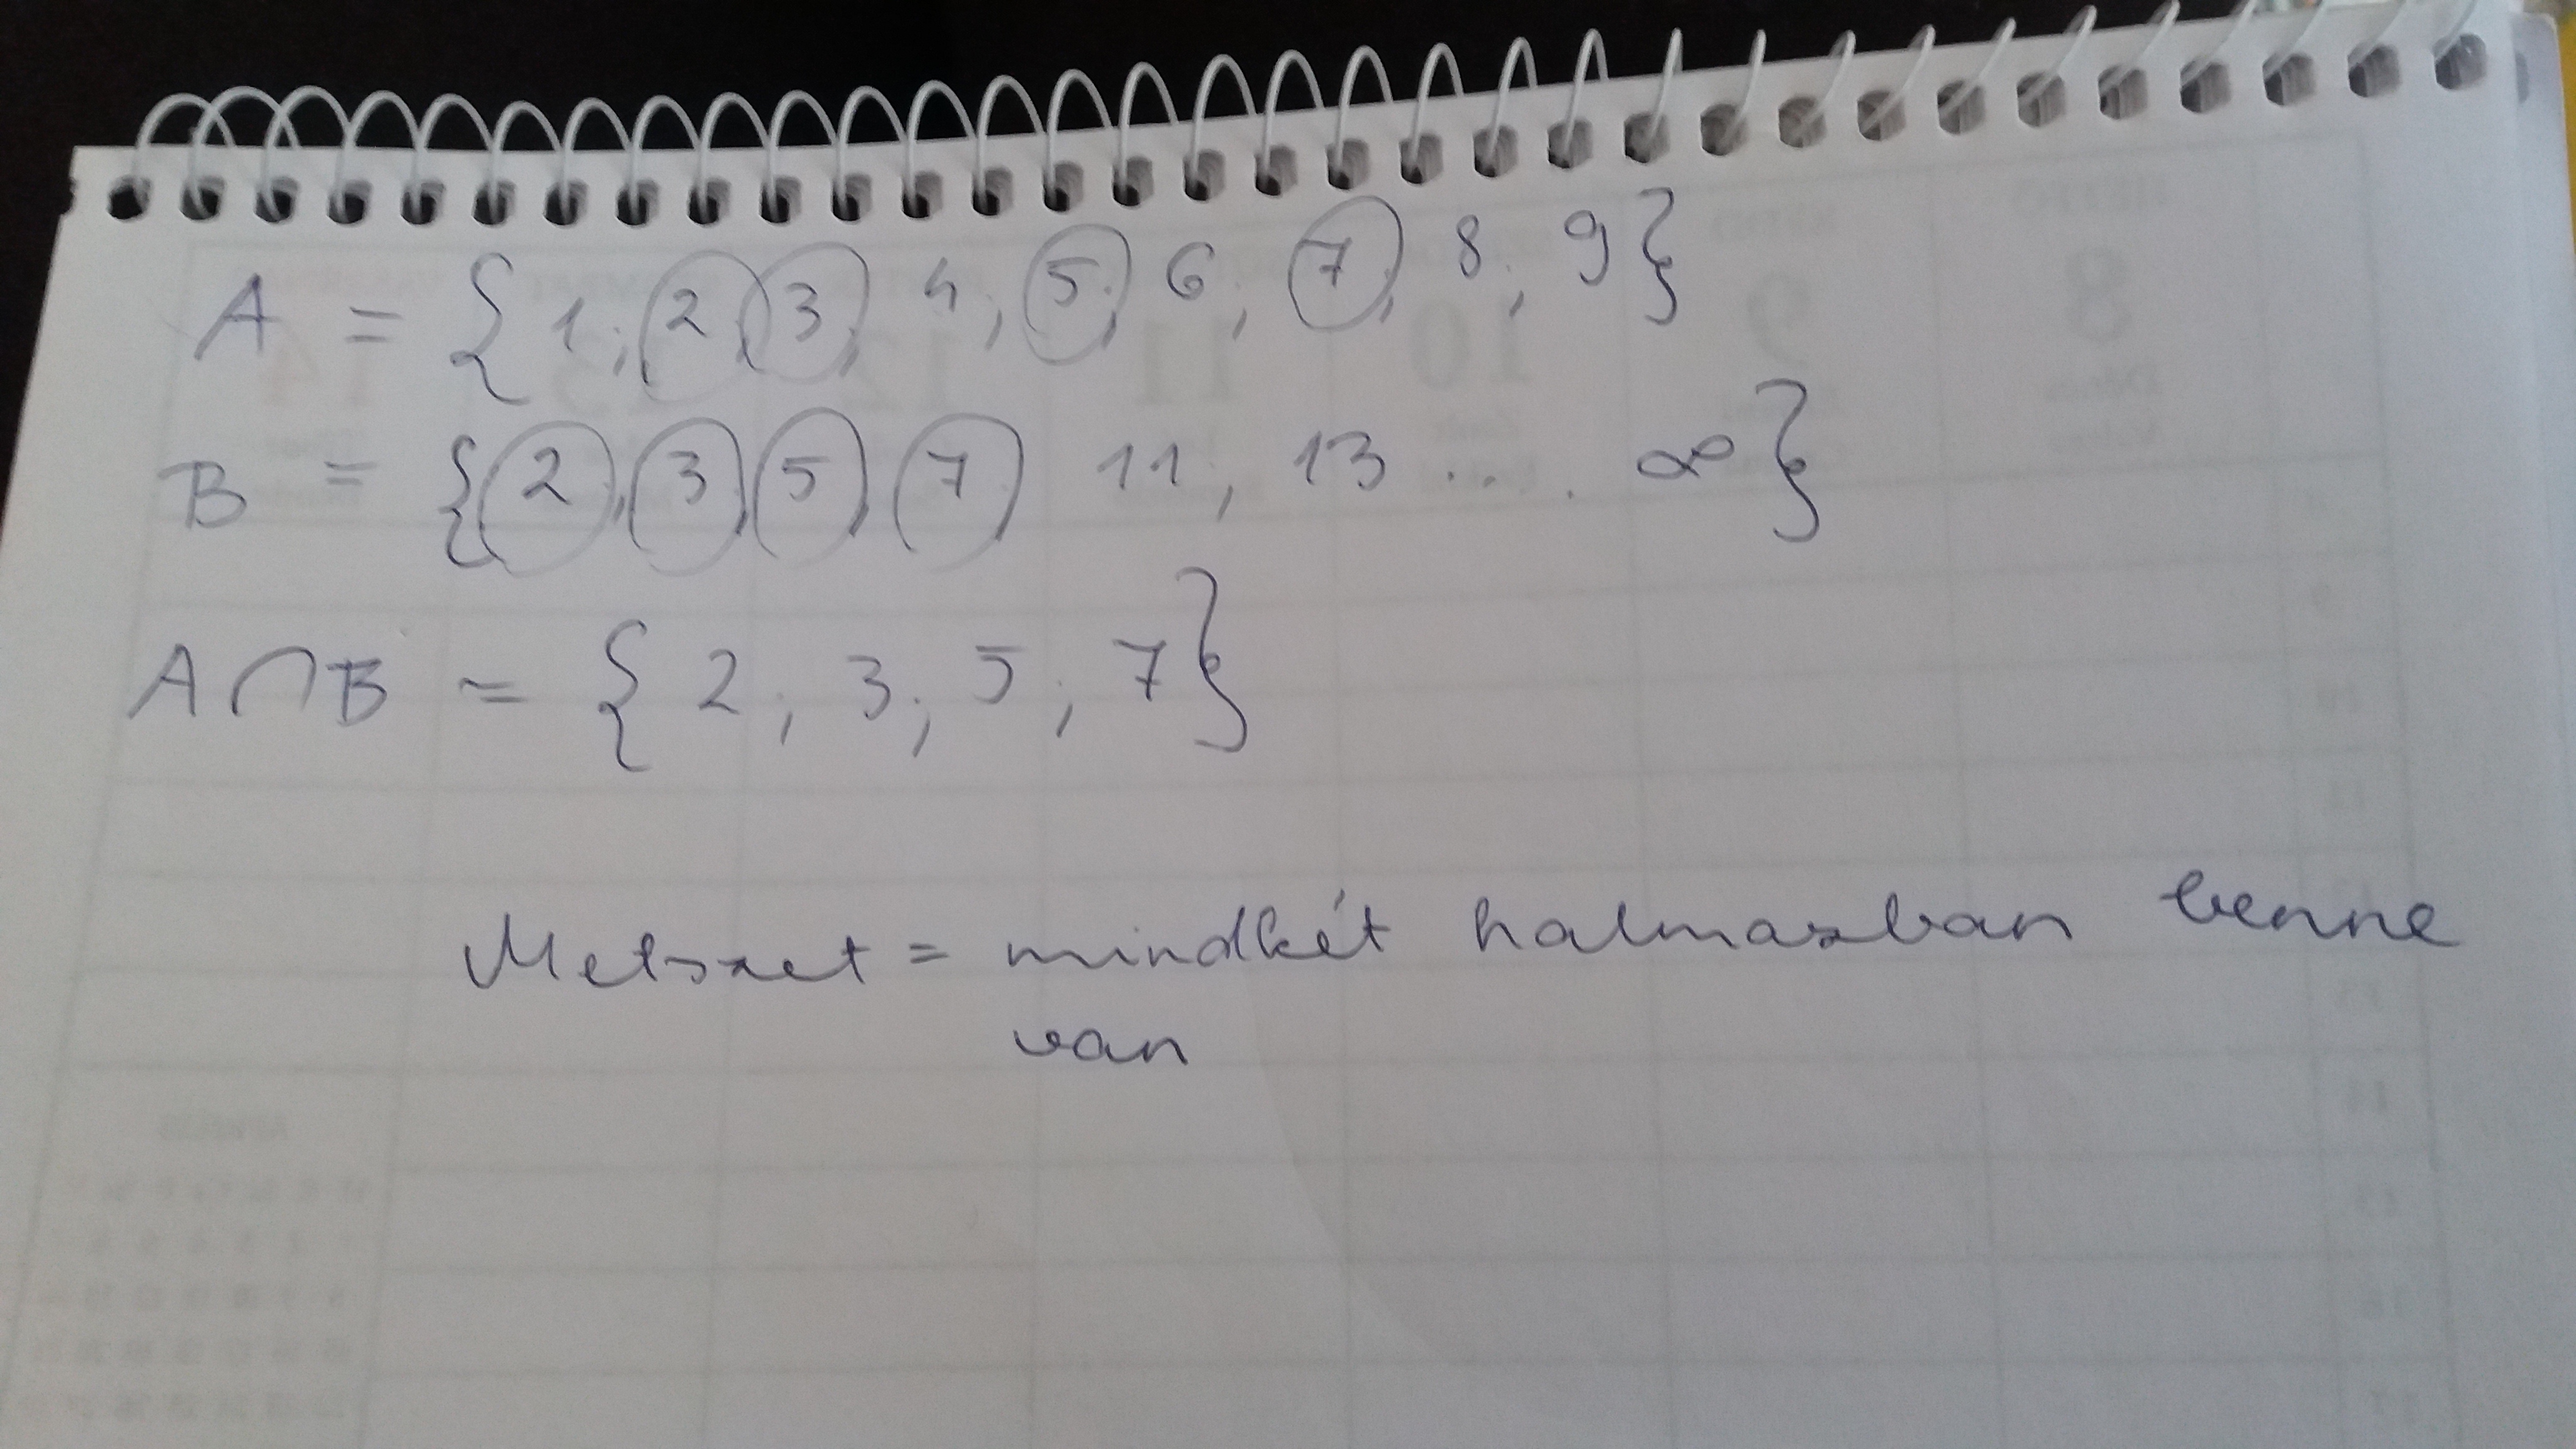 A = {1; 2; 3; 4; 5; 6; 7; 8; 9}
B = {2; 3; 5; 7 11, 13 .... ∞}
A∩B = {2; 3; 5; 7}
Metszet = mindkét halmazban benne
van